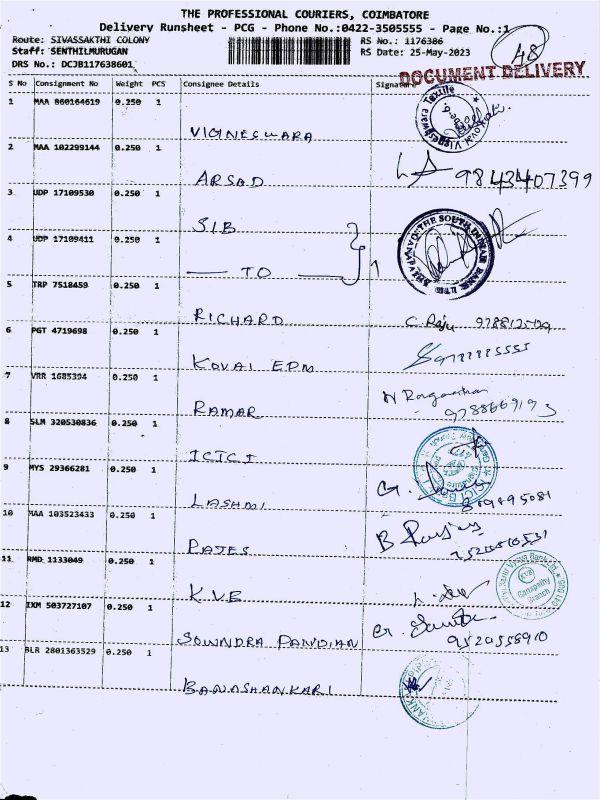 THE PROFESSIONAL COURIERS, COIMBATORE
Delivery Runsheet - PCG - Phone No.:0422-3505555 - Page No.:1
Route: SIVASSAKTHI COLONY
RS No.: 1176386
48
Staff: SENTHILMURUGAN
RS Date: 25-May-2023
DRS No.: DCJB117638601
DOCUMENT DELIVERY
S No Consignment No Weight PCS Consignee Details Signature
1 MAA 860164619 0.250 1
VIGINESWARA
2 MAA 102299144 0.250 1
ARSAD 9843407399
3 UDP 17109530 0.250 1
SIB
THE SOUTH INDIAN BANK LTD
4 UDP 17109411 0.250 1
TO
5 TRP 7518459 0.250 1
RICHARD C. Raju
6 PGT 4719698 0.250 1
KOVAI EPM
7 VRR 1685394 0.250 1
RAMAR 9788669193
8 SLM 320530836 0.250 1
ICICI
9 MYS 29366281 0.250 1
LASHMI
10 MAA 103523433 0.250 1
PAJES
11 RMD 1133049 0.250 1
KVB
Ganapathy
Branch
12 IXM 503727107 0.250 1
SOWNDRA PANDIAN 9520558910
13 BLR 2801363529 0.250 1
BANASHANKARI